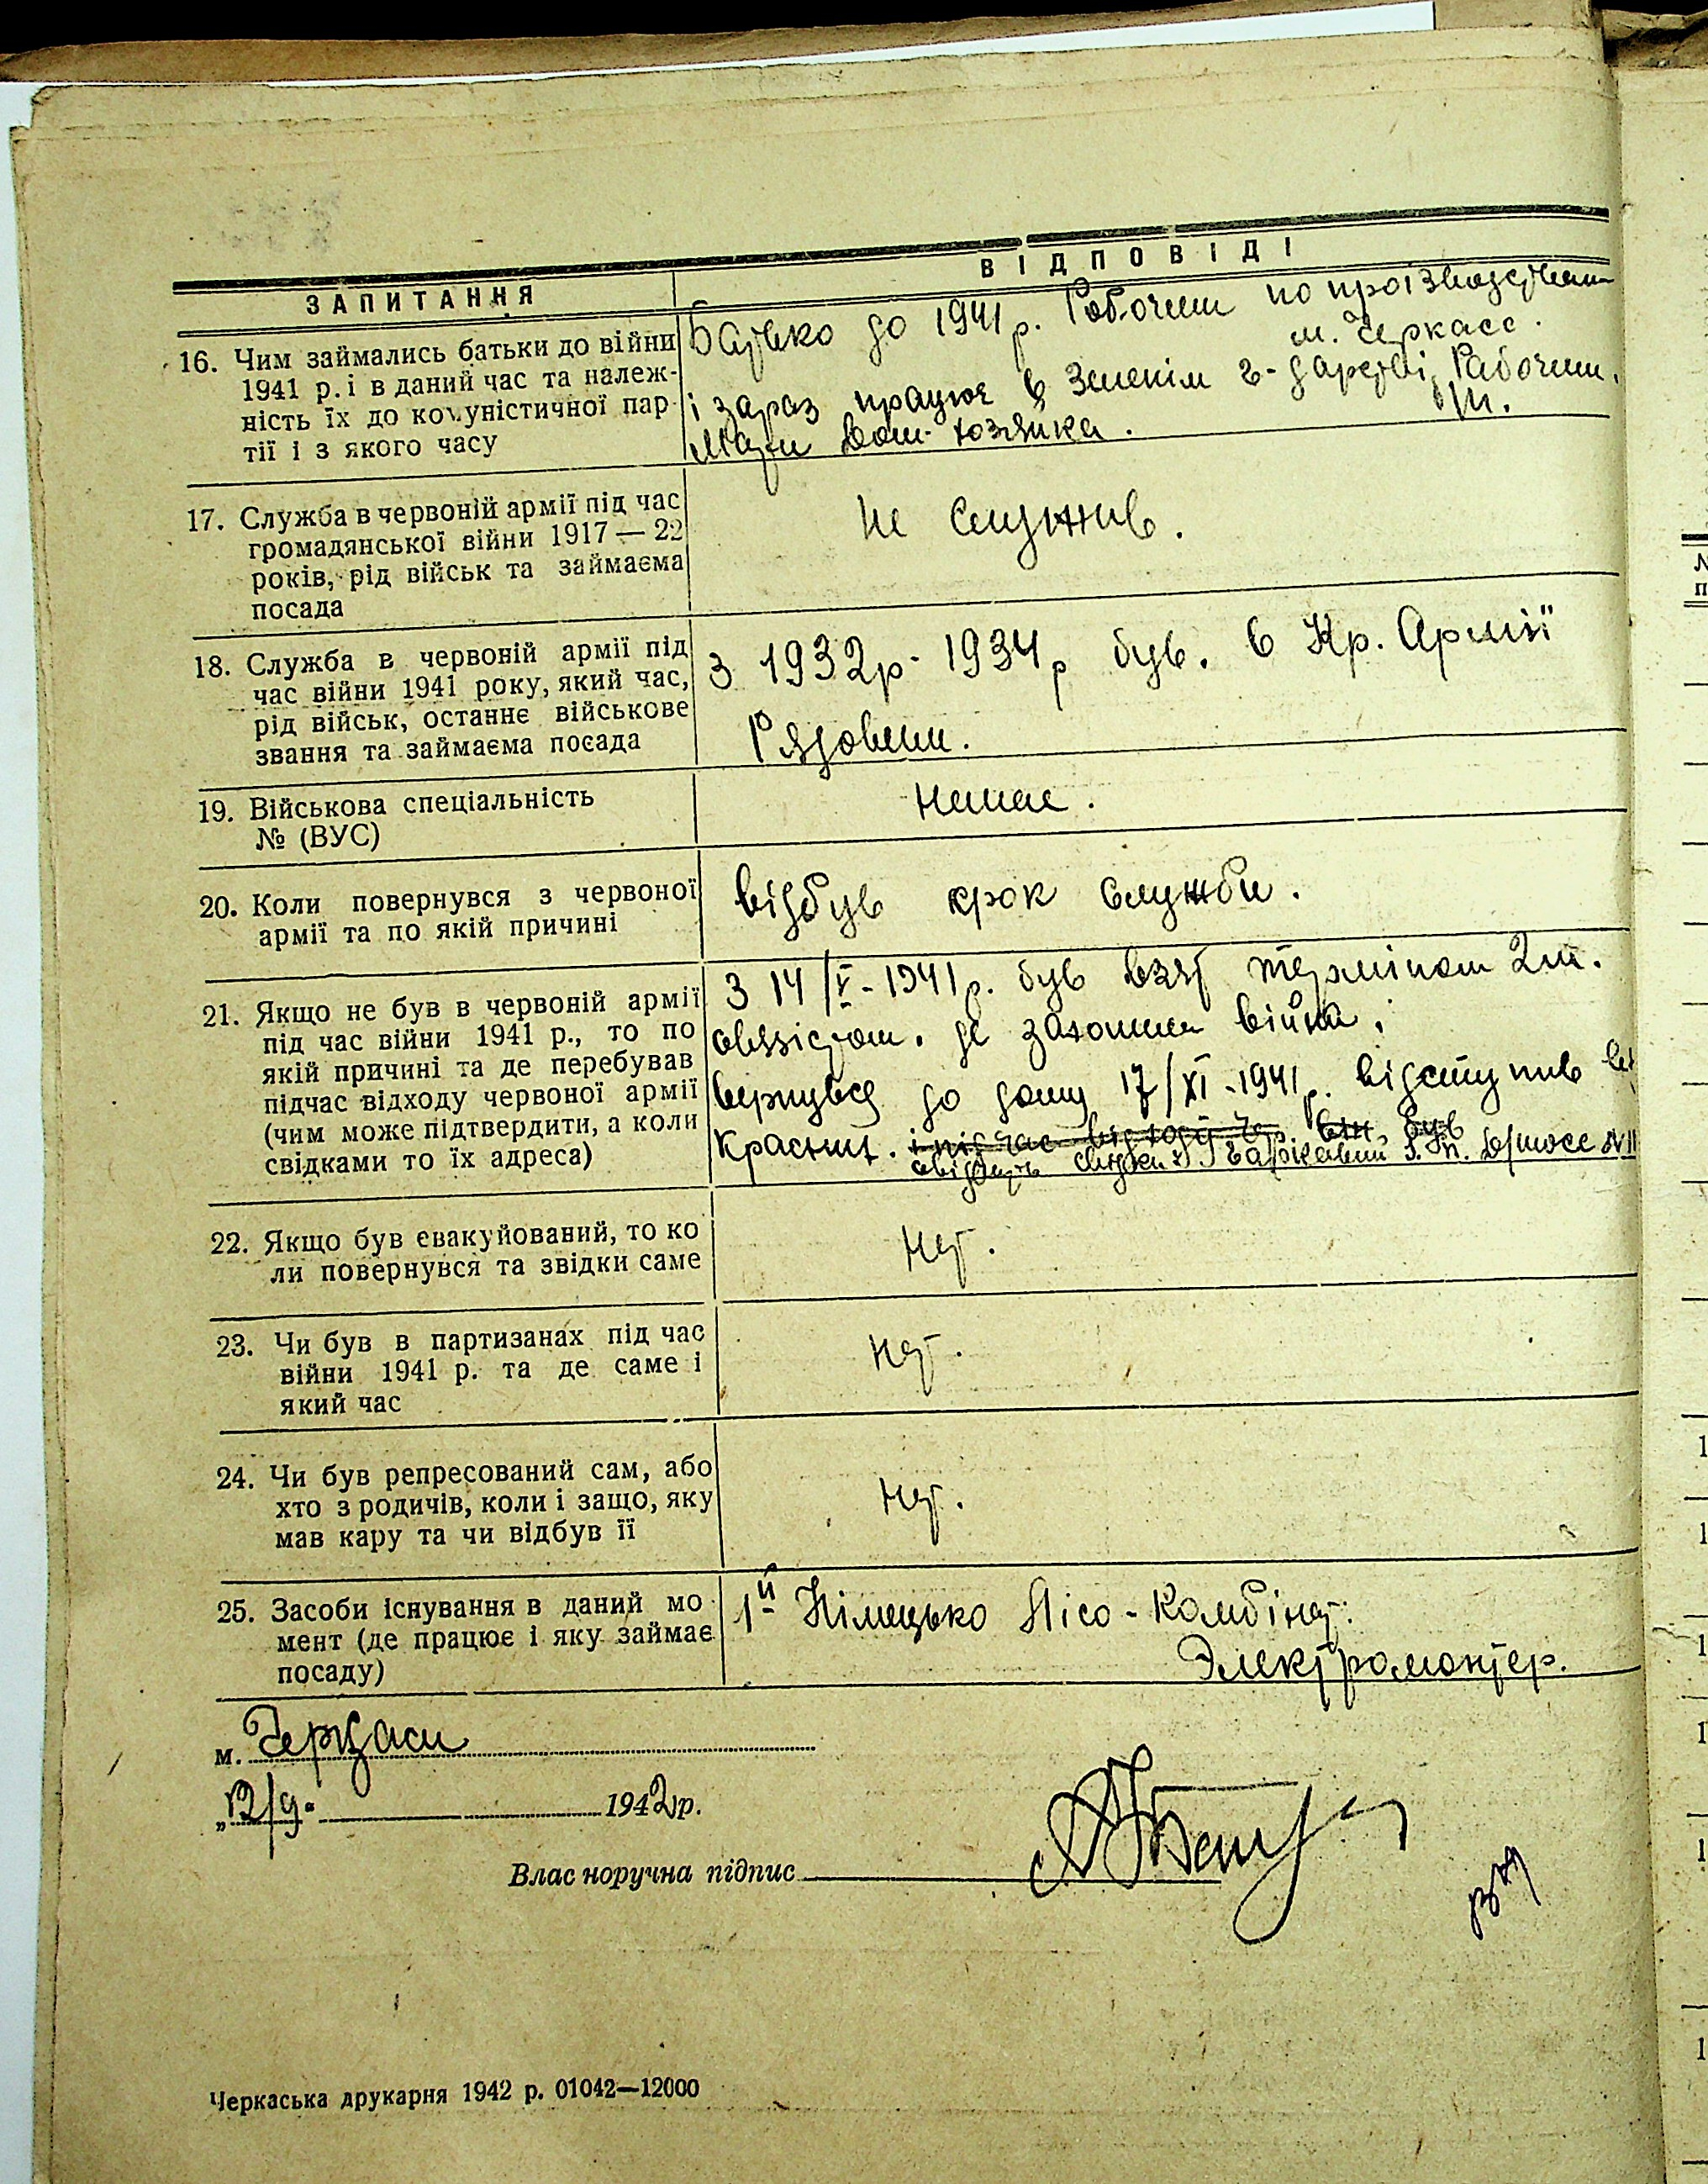 ЗАПИТАННЯ
ВІДПОВІДІ
16. Чим займались батьки до війни
1941 р. і в даний час та належ-
ність їх до комуністичної пар-
тії і з якого часу
Батько до 1941 р. Робочим по проізводствам
м. Черкасс.
і зараз працює в Зеленім г-дарстві Рабочим.
Мати Дом. хозяйка.
17. Служба в червоній армії під час
громадянської війни 1917 — 22
років, рід військ та займаєма
посада
Не служив.
18. Служба в червоній армії під
час війни 1941 року, який час,
рід військ, останнє військове
звання та займаєма посада
З 1932р - 1934р був. в Кр. Армії
Рядовим.
19. Військова спеціальність
№ (ВУС)
Немає.
20. Коли повернувся з червоної
армії та по якій причині
відбув срок служби.
21. Якщо не був в червоній армії
під час війни 1941 р., то по
якій причині та де перебував
підчас відходу червоної армії
(чим може підтвердити, а коли
свідками то їх адреса)
З 14/V - 1941 р. був взят терміном 2 м.
де война.
вернувся до дому 17/XI - 1941 р. відступив
Красних. і під час відходу Чр. був
свідки
22. Якщо був евакуйований, то ко
ли повернувся та звідки саме
Нет.
23. Чи був в партизанах під час
війни 1941 р. та де саме і
який час
Нет.
24. Чи був репресований сам, або
хто з родичів, коли і защо, яку
мав кару та чи відбув її
Нет.
25. Засоби існування в даний мо
мент (де працює і яку займає
посаду)
1й Німецько Лісо - Комбінат.
Электромонтер.
м. Черкаси
„12/9. 1942 р.
Власноручна підпис
Черкаська друкарня 1942 р. 01042—12000